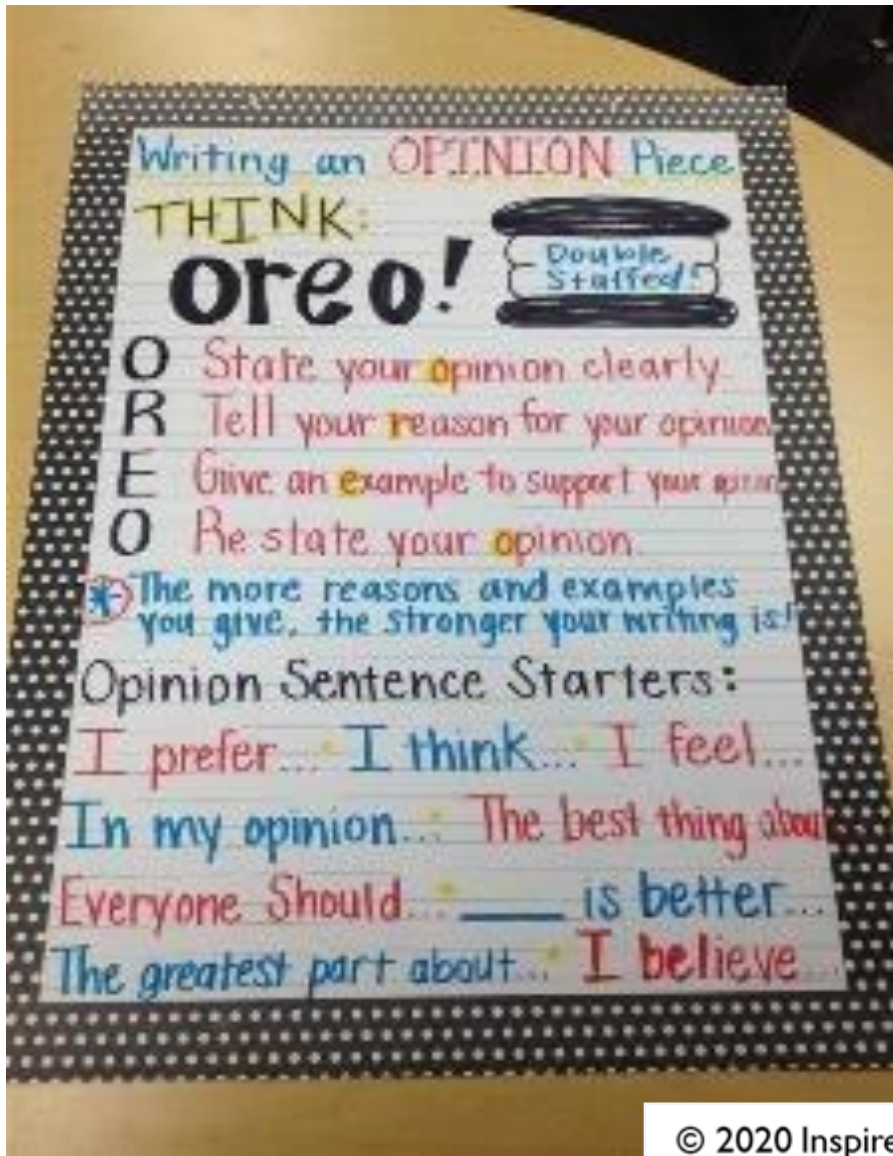 Writing an OPINION Piece
THINK:
oreo!
Double
Stuffed!
O State your opinion clearly.
R Tell your reason for your opinion
E Give an example to support your
O Restate your opinion.
The more reasons and examples
you give, the stronger your writing is!
Opinion Sentence Starters:
I prefer... I think... I feel...
In my opinion... The best thing about
Everyone Should... ____ is better...
The greatest part about... I believe...
© 2020 Inspire